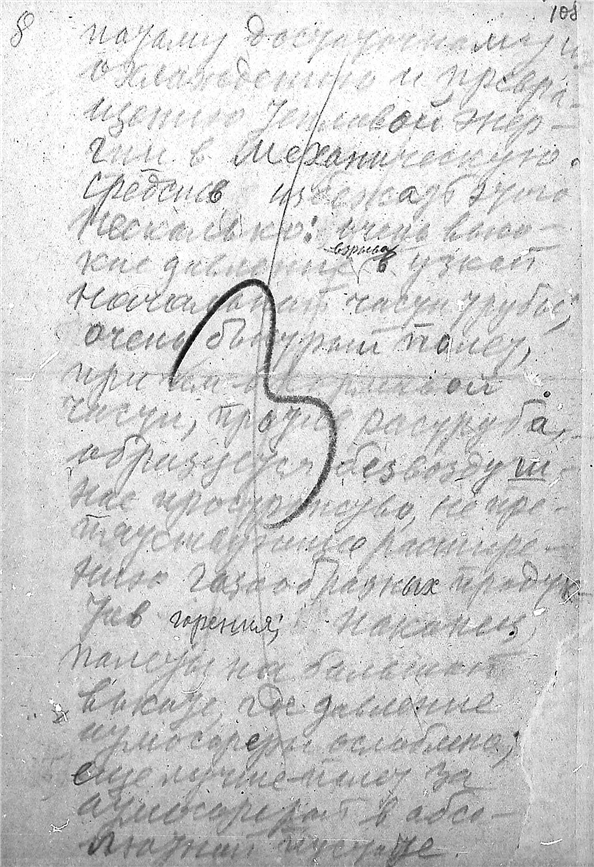 8 108
потому достаточному
охлаждению и превра-
щению тепловой энер-
гии в механическую.
средств избежать этого
несколько: очень высо-
кие давления взрыва в узкой
начальной части трубы;
очень быстрый полет,
при кормовой
части, раструба,
образуется безвоздуш-
ное пространство, не пре-
пятствующее расшире-
нию газообразных продук-
тов горения; наконец,
полеты на большой
высоте, где давление
атмосферы ослаблено;
еще лучше полет за
атмосферой в абсо-
лютной пустоте.